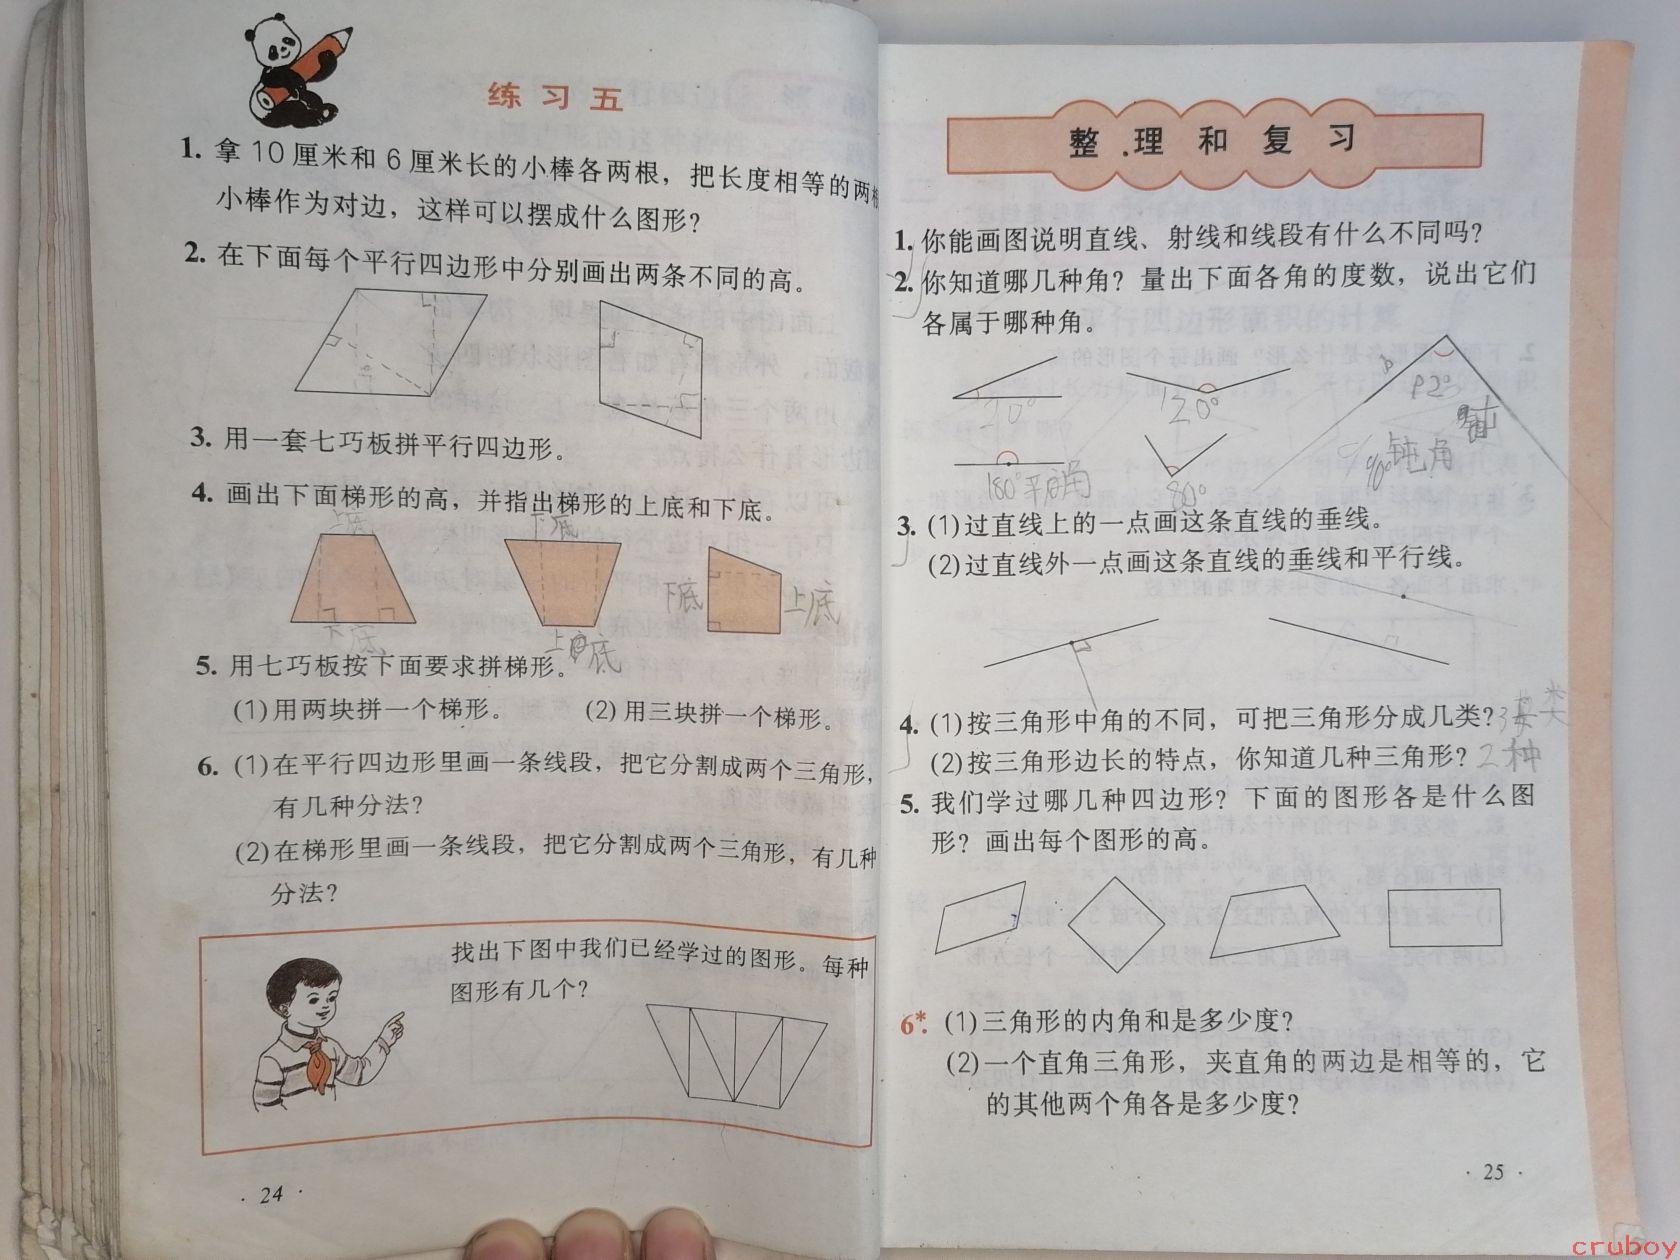 练习五
1. 拿 10 厘米和 6 厘米长的小棒各两根，把长度相等的两根
小棒作为对边，这样可以摆成什么图形？
2. 在下面每个平行四边形中分别画出两条不同的高。
3. 用一套七巧板拼平行四边形。
4. 画出下面梯形的高，并指出梯形的上底和下底。
上底
下底
下底
上底
下底
上底
5. 用七巧板按下面要求拼梯形。
(1)用两块拼一个梯形。 (2)用三块拼一个梯形。
6. (1)在平行四边形里画一条线段，把它分割成两个三角形，
有几种分法？
(2)在梯形里画一条线段，把它分割成两个三角形，有几种
分法？
找出下图中我们已经学过的图形。每种
图形有几个？
· 24 ·
整理和复习
1. 你能画图说明直线、射线和线段有什么不同吗？
2. 你知道哪几种角？量出下面各角的度数，说出它们
各属于哪种角。
20°
120°
180°平角
80°
90°
钝角
3. (1)过直线上的一点画这条直线的垂线。
(2)过直线外一点画这条直线的垂线和平行线。
4. (1)按三角形中角的不同，可把三角形分成几类？3类
(2)按三角形边长的特点，你知道几种三角形？2种
5. 我们学过哪几种四边形？下面的图形各是什么图
形？画出每个图形的高。
6*. (1)三角形的内角和是多少度？
(2)一个直角三角形，夹直角的两边是相等的，它
的其他两个角各是多少度？
· 25 ·
cruboy